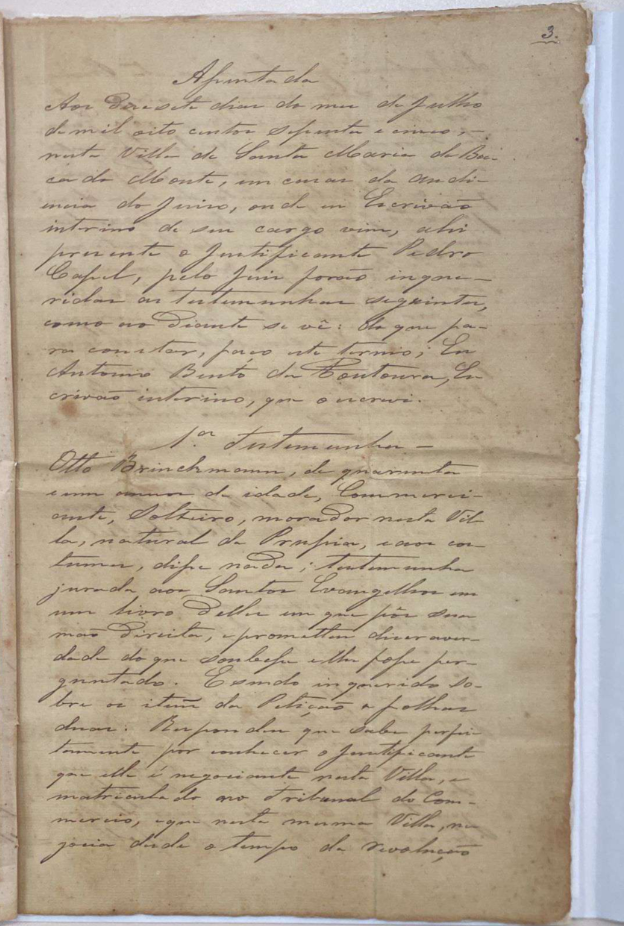 3.
Assentada
Aos Desesete dias do mez de Julho
de mil oito centos setenta e cinco,
nesta Villa de Santa Maria da Boc-
ca do Monte, em casas da audi-
encia do Juiso, onde eu Escrivão
interino de seu cargo vim, ahi
presente o Justificante Pedro
Cassel, pelo Juiz forão inque-
ridas as testemunhas seguintes,
como ao Diante se vê: do que pa-
ra constar, faço este termo; Eu
Antonio Bento da Fontoura, Es-
crivão interino, que o escrevi.
1.a Testemunha
Otto Brinckmann, de quarenta
e um annos de idade, Commerci-
ante, Solteiro, morador nesta Vil-
la, natural da Prussia, e aos cos-
tumes, disse nada; testemunha
jurada aos Santos Evangelhos em
um livro Delles em que pôs sua
mão Direita, e prometteu dizer a ver-
dade do que soubesse e lhe fosse per-
guntado. E sendo inquerido so-
bre os itens da Petição a folhas
duas. Respondeu que sabe perfei-
tamente por conhecer o Justificante
que elle é negociante nesta Villa, e
matriculado no Tribunal do Com-
mercio, e que nesta mesma Villa, ne-
gocia desde o tempo da revolução